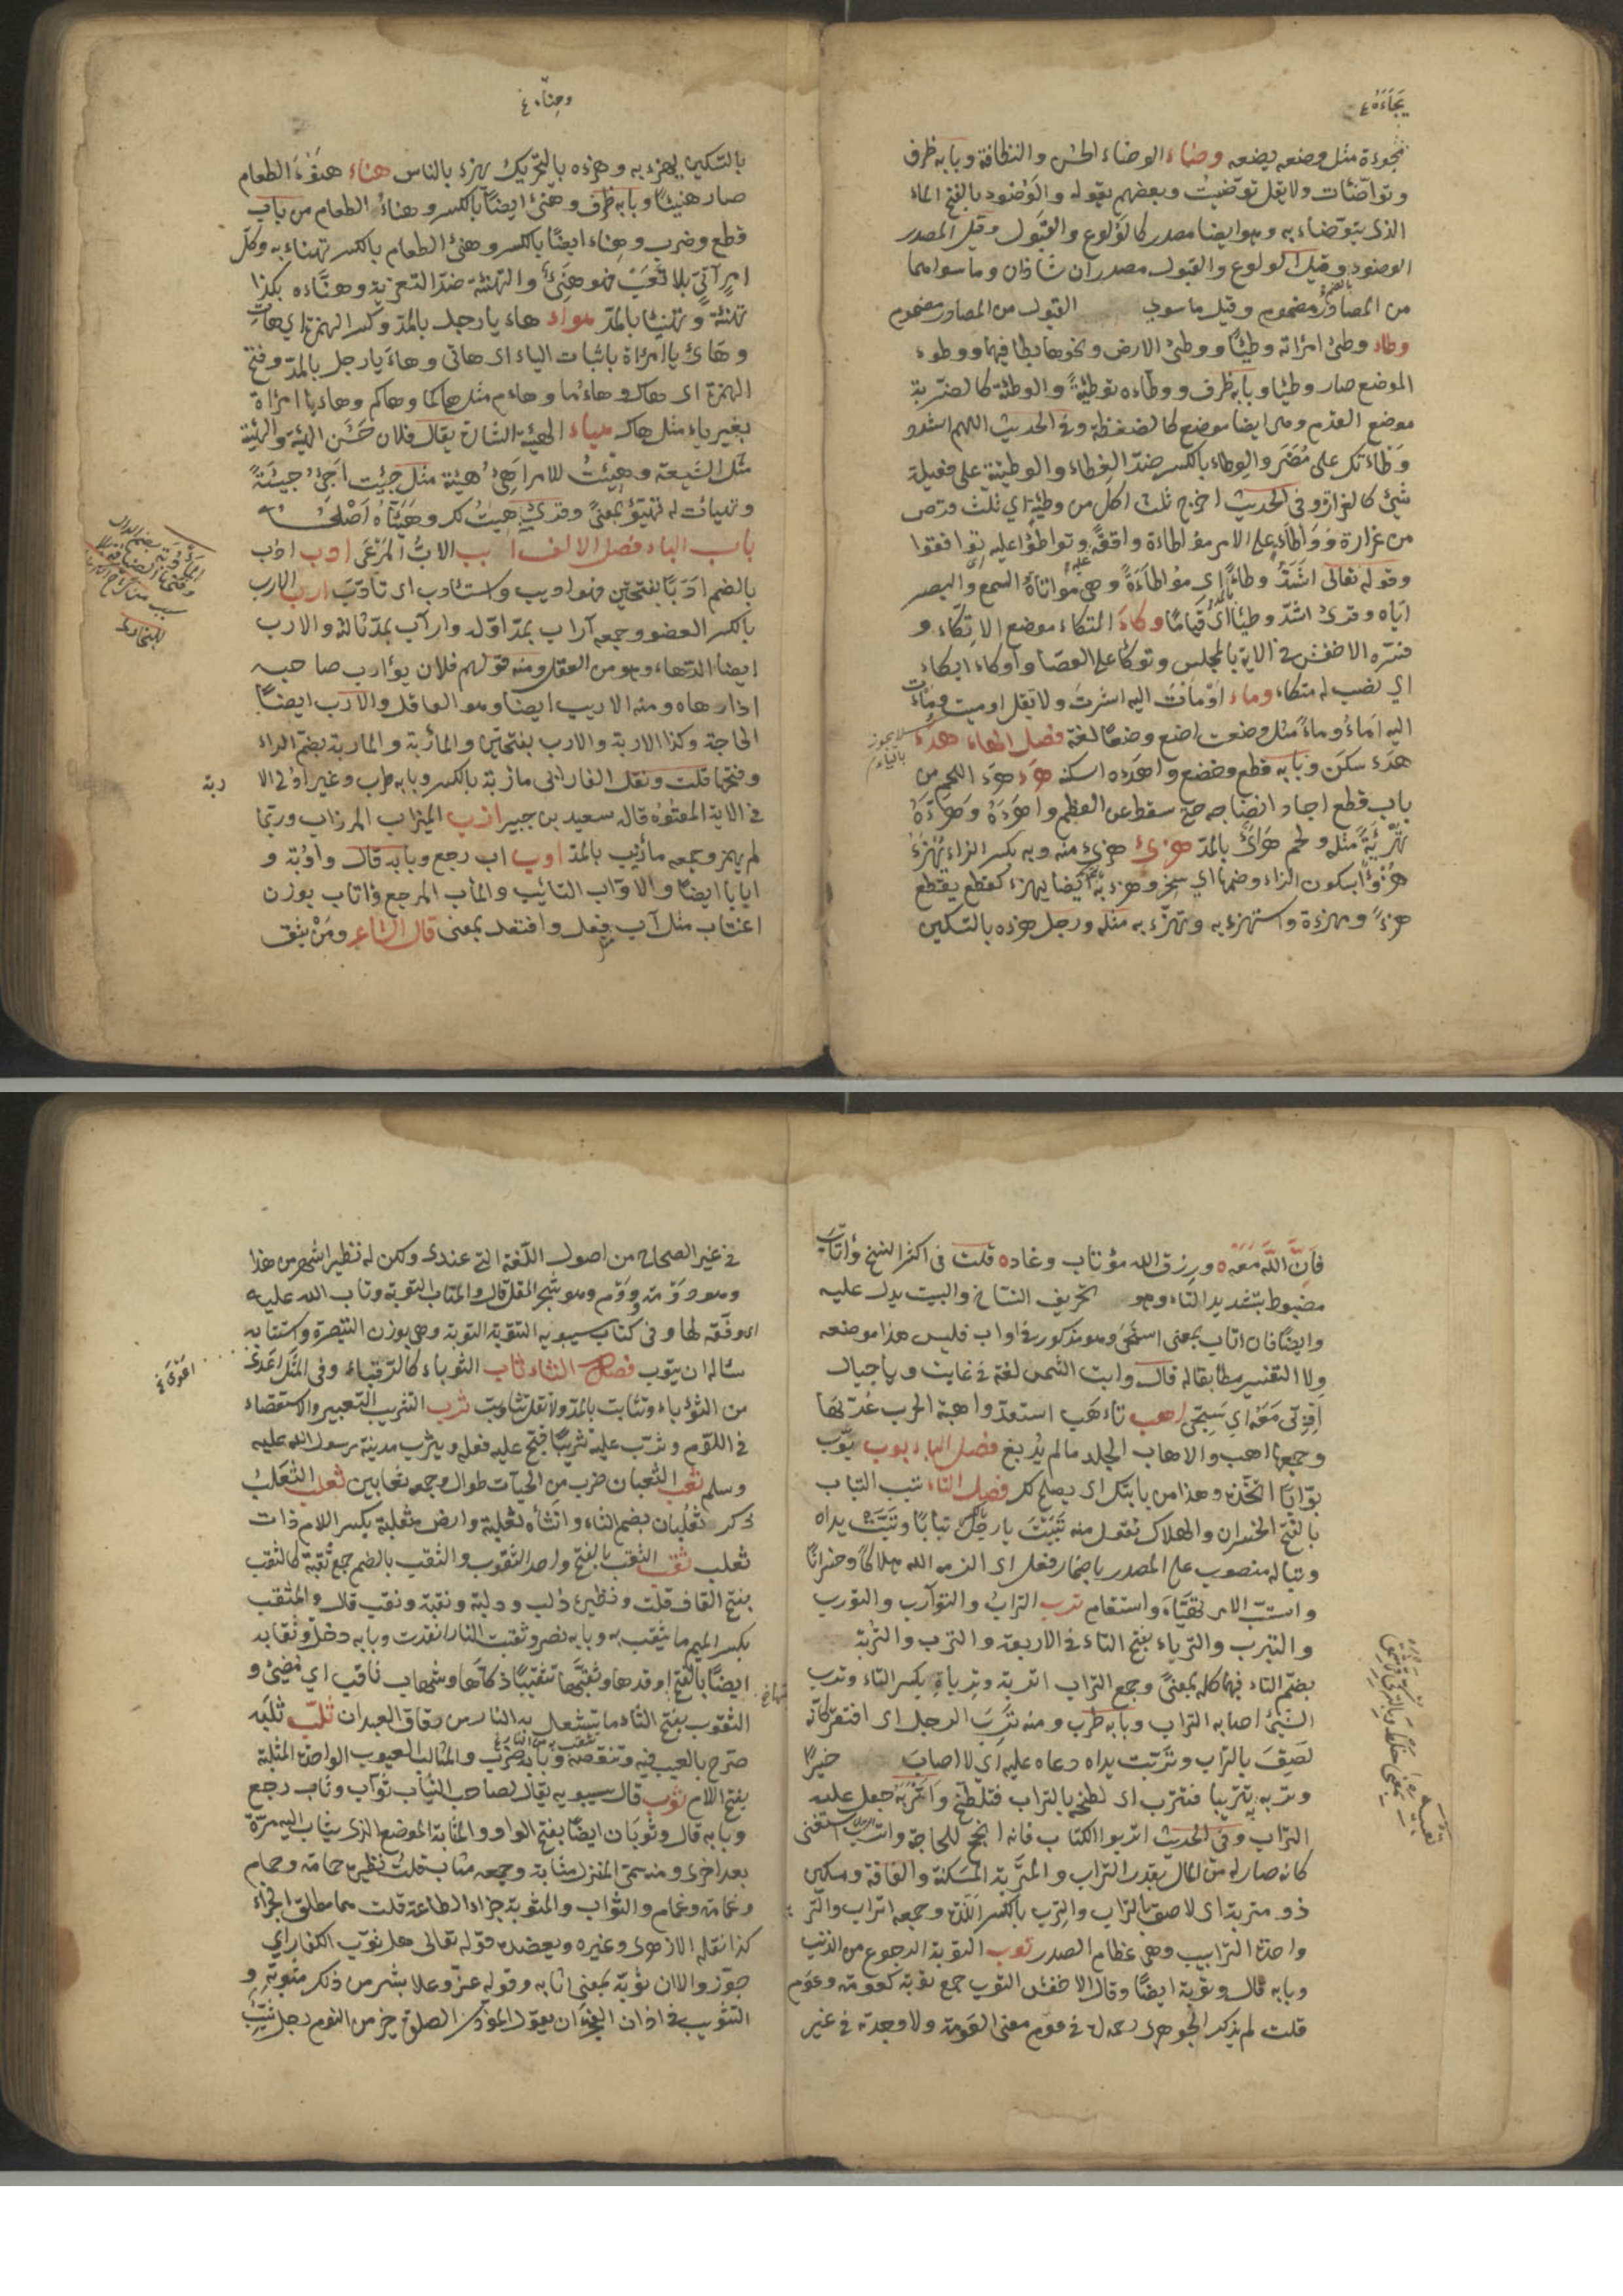 يجاءه ع
فجوءة مثل وضعه يضعه وضاء الوضاء الحسن والنظافة وبابه ظرف
وتوضّئات ولا يقل توضيت وبعضهم يقوله والوضوء بالفتح الماء
الذى يتوضاء به وهو ايضا مصدر كالولوع والقبول وقيل المصدر
الوضوء وقيل الولوع والقبول مصدران شاذان وما سواهما
من المصادر مضموم وقيل ما سوى القبول من المصادر مضموم
وطاء وطئ امراته وطئا ووطئ الارض ونحوها يطا فيهما ووطوء
الموضع صار وطيئا وبابه ظرف ووطاءه توطيئةً والوطئة كالضربة
موضع القدم وهى ايضا موضع كالضغطة وفى الحديث اللهم اشدد
وطاءتك على مُضَر والوطاء بالكسر ضدّ الغطاء والوطيئة على فعيلة
شئ كالغرارة وفى الحديث اخرج ثلث اكل من وطيئة اي ثلث قرص
من غرارة ووَاطَاءه على الامر مواطاءة وافقه وتواطؤا عليه توافقوا
وقوله تعالى اشَدّ وطاءً اى مؤاطاءَةً وهى مواتاة السمع والبصر
ايّاه وقرئ اشدّ وطئا اى قيامًا وكاءَ المتكاء موضع الاتكاء و
فسّره الاخفش فى الاية بالمجلس وتوكّا على العصا واوكاء ايكاء
اي نصب له متكاء وماء اوْمَأتُ اليه اشرتُ ولا تقل اوميت ومِئات
اليه امَاءُ وماءً مثل وضعت اضع وضعًا لغة فصل الهاء هدء
لا يجوز بالياء
هَدَء سكَن وبابه قطع وخضع واهدَءه اسكنه هرء هَرَء اللحم من
باب قطع اجاد انضاجه حتى سقط عن العظم واهرَءَهُ وهَرّاءَهُ
تَهْرِئَةً مثله ولحم هَرِئٌ بالمدّ هزئ هزئ منه وبه بكسر الزاء يَهْزَءُ
هزُؤًا بسكون الزاء وضمها اي سخر وهزء به ايضا يهزء كقطع يقطع
هزءً ومهزءة واستهزء به وتهزّء به مثله ورجل هزءه بالتسكين
وجناء ع
بالتسكين يهزء به وهزءه بالتحريك يهزء بالناس هناء هَنُؤَ الطعام
صار هنيئا وبابه ظرف وهنئ ايضا بالكسر وهناءُ الطعام من باب
قطع وضرب وهناء ايضًا بالكسر وهنئ الطعام بالكسر تهناء به وكلّ
امرٍ اَتىٰ بلا تَعَبٍ فهو هَنِئٌ والتهنئة ضدّ التعزية وهنّاءه بكذا
تهنئة وتهنيئا بالمدّ هواء هاء يا رجل بالمدّ وكسر الهمزة اي هاتِ
وهَائ يا امرأة باثبات الياء اى هاتى وهاءَ يا رجل بالمدّ وفتح
الهمزة اى هاك وهاؤما وهاءم مثل هاكما وهاكم وهاءِ يا امراة
بغير ياء مثل هاك هياء الهيئة الشارة يقال فلان حَسَن الهيئة والهيئة
مثل الشيعة وهِئتُ للامر اَهِئُ هيئة مثل جِئت اَجئ جيئَةً
وتهيات له تهيؤ بمعنًى وقرئ هيتُ لك وهَيَّأَهُ اَصْلَحَهُ
باب الباء فصل الالف ابب الابُّ المَرْعَى ادب ادُب
بالضم ادَبًا بفتحتين فهو اديب واستادب اى تأدّبَ ارب الارب
بالكسر العضو وجمعه آراب بمدّ اوّله وارآب بمدّ ثالثه والارب
ايضا الدّهاء وهو من العقل ومنه قولهم فلان يؤارب صاحبه
اذا داهاه ومنه الاريب ايضا وهو العاقل والاَرَب ايضًا
الحاجة وكذا الاربة والارب بفتحتين والمأربة والماربة بضمّ الراء
وفتحها قلت ونقل الفارابى ماربة بالكسر وبابه طرب وغير اولى الا ربة
فى الاية المعتُوه قاله سعيد بن جبير ازب الميزاب المرزاب وربّما
لم يهمز وجمعه مازيب بالمدّ اوب اب رجع وبابه قال واوْبة و
ايابا ايضا والاوّاب التائب والماب المرجع واتاب بوزن
اعتاب مثل آب فعل وافتعل بمعنى قال الشاعر ومَنْ يتق
فَاِنَّ اللهَ مَعَهْ ٥ ورزق الله مؤتاب وغاده قلت فى اكثر النسخ واتّابَ
مضبوط بتشديد التاء وهو تحريف النساخ والبيت يدل عليه
وايضًا فان اتاب بمعنى استَحْيٰ وهو مذكور فى اواب فليس هذا موضعه
ولا التفسير مطابقا له قال وابت الشمس لغة فى غابت ويا جبال
اَوّبِى مَعَهُ اي سَبّحى اهب تاءهَب استعدّ واهبة الحرب عُدّتها
وجمعها اهب والاهاب الجلد ما لم يدبغ فصل الباء بوب بَوّب
بوّابًا اتّخذه وهذا من بابتك اى يصلح لك فصل التاء تبب التباب
بالفتح الخسران والهلاك تقول منه تبَبْتَ يا رجل تبابًا وتبّتْ يداه
وتبا له منصوب على المصدر باضمار فعل اى الزمه الله هلاكًا وخسرانًا
واستتبّ الامر تَهَيّاءَ واستقام ترب الترابُ والتوآرب والتورب
والتيرب والترباء بفتح التاء فى الاربعة والترب والتربة
بضمّ التاء فيهما كله بمعنًى وجمع التراب اتربة وتِرباة بكسر التاء وترب
الشئ اصابه التراب وبابه طرب ومنه تَرِبَ الرجل اى افتقر كانّه
لَصِقَ بالتراب وتَرِبَت يداه دعاء عليه اى لا اصاب خيرًا
وتربه تتريبا فتترب اى لطخه بالتراب فتلطّخ واَتْرَبَهُ جعل عليه
التراب وفى الحديث اتربوا الكتاب فانه انجح للحاجة واترب الرجل استغنى
كانه صار له من المال بقدر التراب والمتربة المسكنة والفاقة ومسكين
ذو متربة اى لاصق بالتراب والتِرب بالكسر اللّدَة وجمعه اتراب والتر
واحدة الترايب وهى عظام الصدر توب التوبة الرجوع من الذنب
وبابه قال وتوبة ايضًا وقال الاخفش التوب جمع توبة كعومة وعَوْم
قلت لم يذكر الجوهرى رحمه الله فى عوم معنى العومة ولا وجدته فى غير
فى غير الصحاح من اصول اللّغة التى عندى ولكن له نظير اشهر من هذا
وهو دَوْمة ودَوْم وهو شجر المقل قال والمتاب التوبة وتاب الله عليه
اى وفّقه لها وفى كتاب سيبويه التتوبة التوبة وهى بوزن التبصرة واستتابه
ساله ان يتوب فصل الثاء ثاب الثوباء كالرقباء وفى المثل اعدى
اعدى
من الثؤباء وتثابت بالمدّ ولا تقل تثاوبت ثرب التثريب التعيير والاستقصاء
فى اللوم وثرّب عليه تثريبًا قبّح عليه فعله ويثرب مدينة رسول الله عليه
وسلم ثعب الثعبان ضرب من الحيات طوال وجمعه ثعابين ثعلب الثعلب
ذكر ثعلُبان بضم الثاء وانثاه ثعلبة وارض مثعلبة بكسر اللام ذات
ثعلب ثقب الثقب بالفتح واحد الثقوب والثقب بالضم جمع ثقبة كالثقب
بفتح القاف قلت ونظيره دُلب ودلبة ونقبة ونقب قال والمثقب
بكسر الميم ما يثقب به وبابه نصر وثقبت النار اتقدت وبابه دخل وثقابه
ايضًا بالفتح اوقدها وثقّبَها تثقيبًا ذكّاها وشهاب ثاقب اى مُضئ و
الثقوب بفتح الثاء ما يشعل به النار من دقاق العيدان ثلب ثلَبه
صَرّح بالعيب فيه وتنقصه وبابه ضرب والمثالب العيوب الواحدة المثلبة
بفتح اللام ثوب قال سيبويه يقال لصاحب الثياب ثوّاب وثاب رجع
وبابه قال وثوَبان ايضًا بفتح الواو والمثابة الموضع الذى يثاب اليه مرّة
بعد اخرى ومنه سمى المنزل مثابة وجمعه مثاب قلت نظيره حمامة وحمام
وغمامة وغمام والثواب والمثوبة جزاء الطاعة قلت هما مطلق الجزاء
كذا نقله الازهرى وغيره ويعضده قوله تعالى هل ثوّب الكفار اى
جوّزوا لان ثوبّه بمعنى اثابه وقوله عزّ وعلا بشر من ذلك مثوبة و
التثويب فى اذان الفجر ان يقول المؤذن الصلوة خير من النوم رجل ثيّب